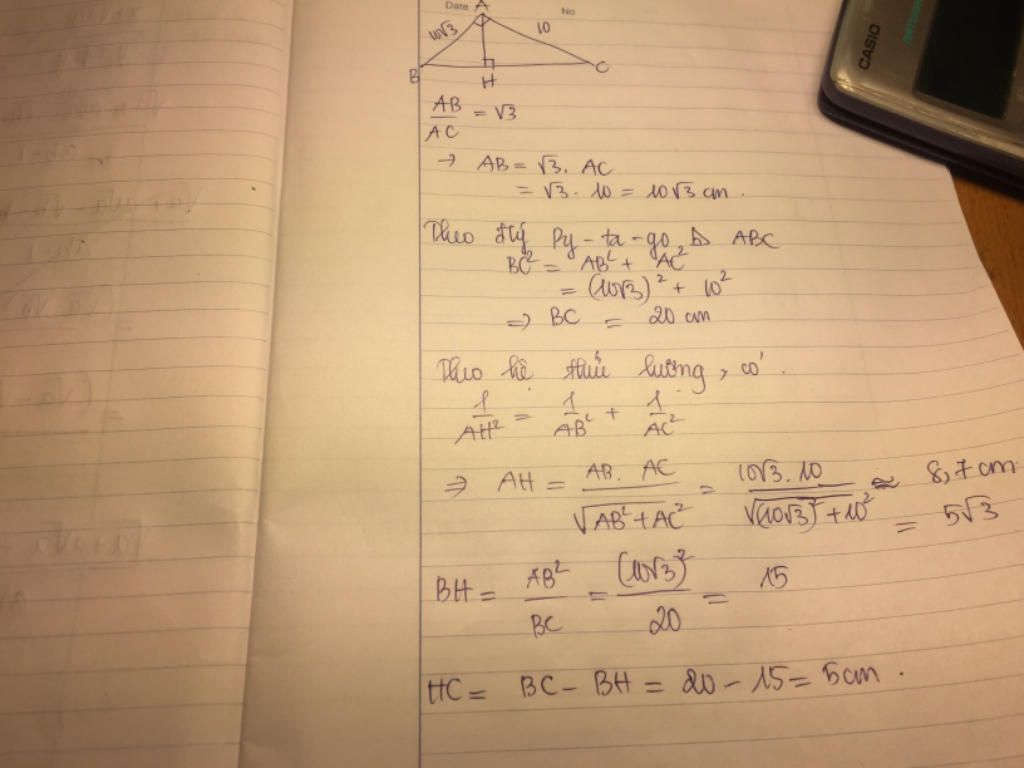 Date No
A
10√3 10
B H C
CASIO
AB/AC = √3
→ AB = √3 . AC
= √3 . 10 = 10√3 cm .
Theo đlý Py - ta - go, △ ABC
BC² = AB² + AC²
= (10√3)² + 10²
⇒ BC = 20 cm
Theo hệ thức lương, có .
1/AH² = 1/AB² + 1/AC²
⇒ AH = AB. AC/√AB² + AC² = 10√3. 10/√(10√3)² + 10² ≈ 8,7 cm
= 5√3
BH = AB²/BC = (10√3)²/20 = 15
HC = BC - BH = 20 - 15 = 5cm .